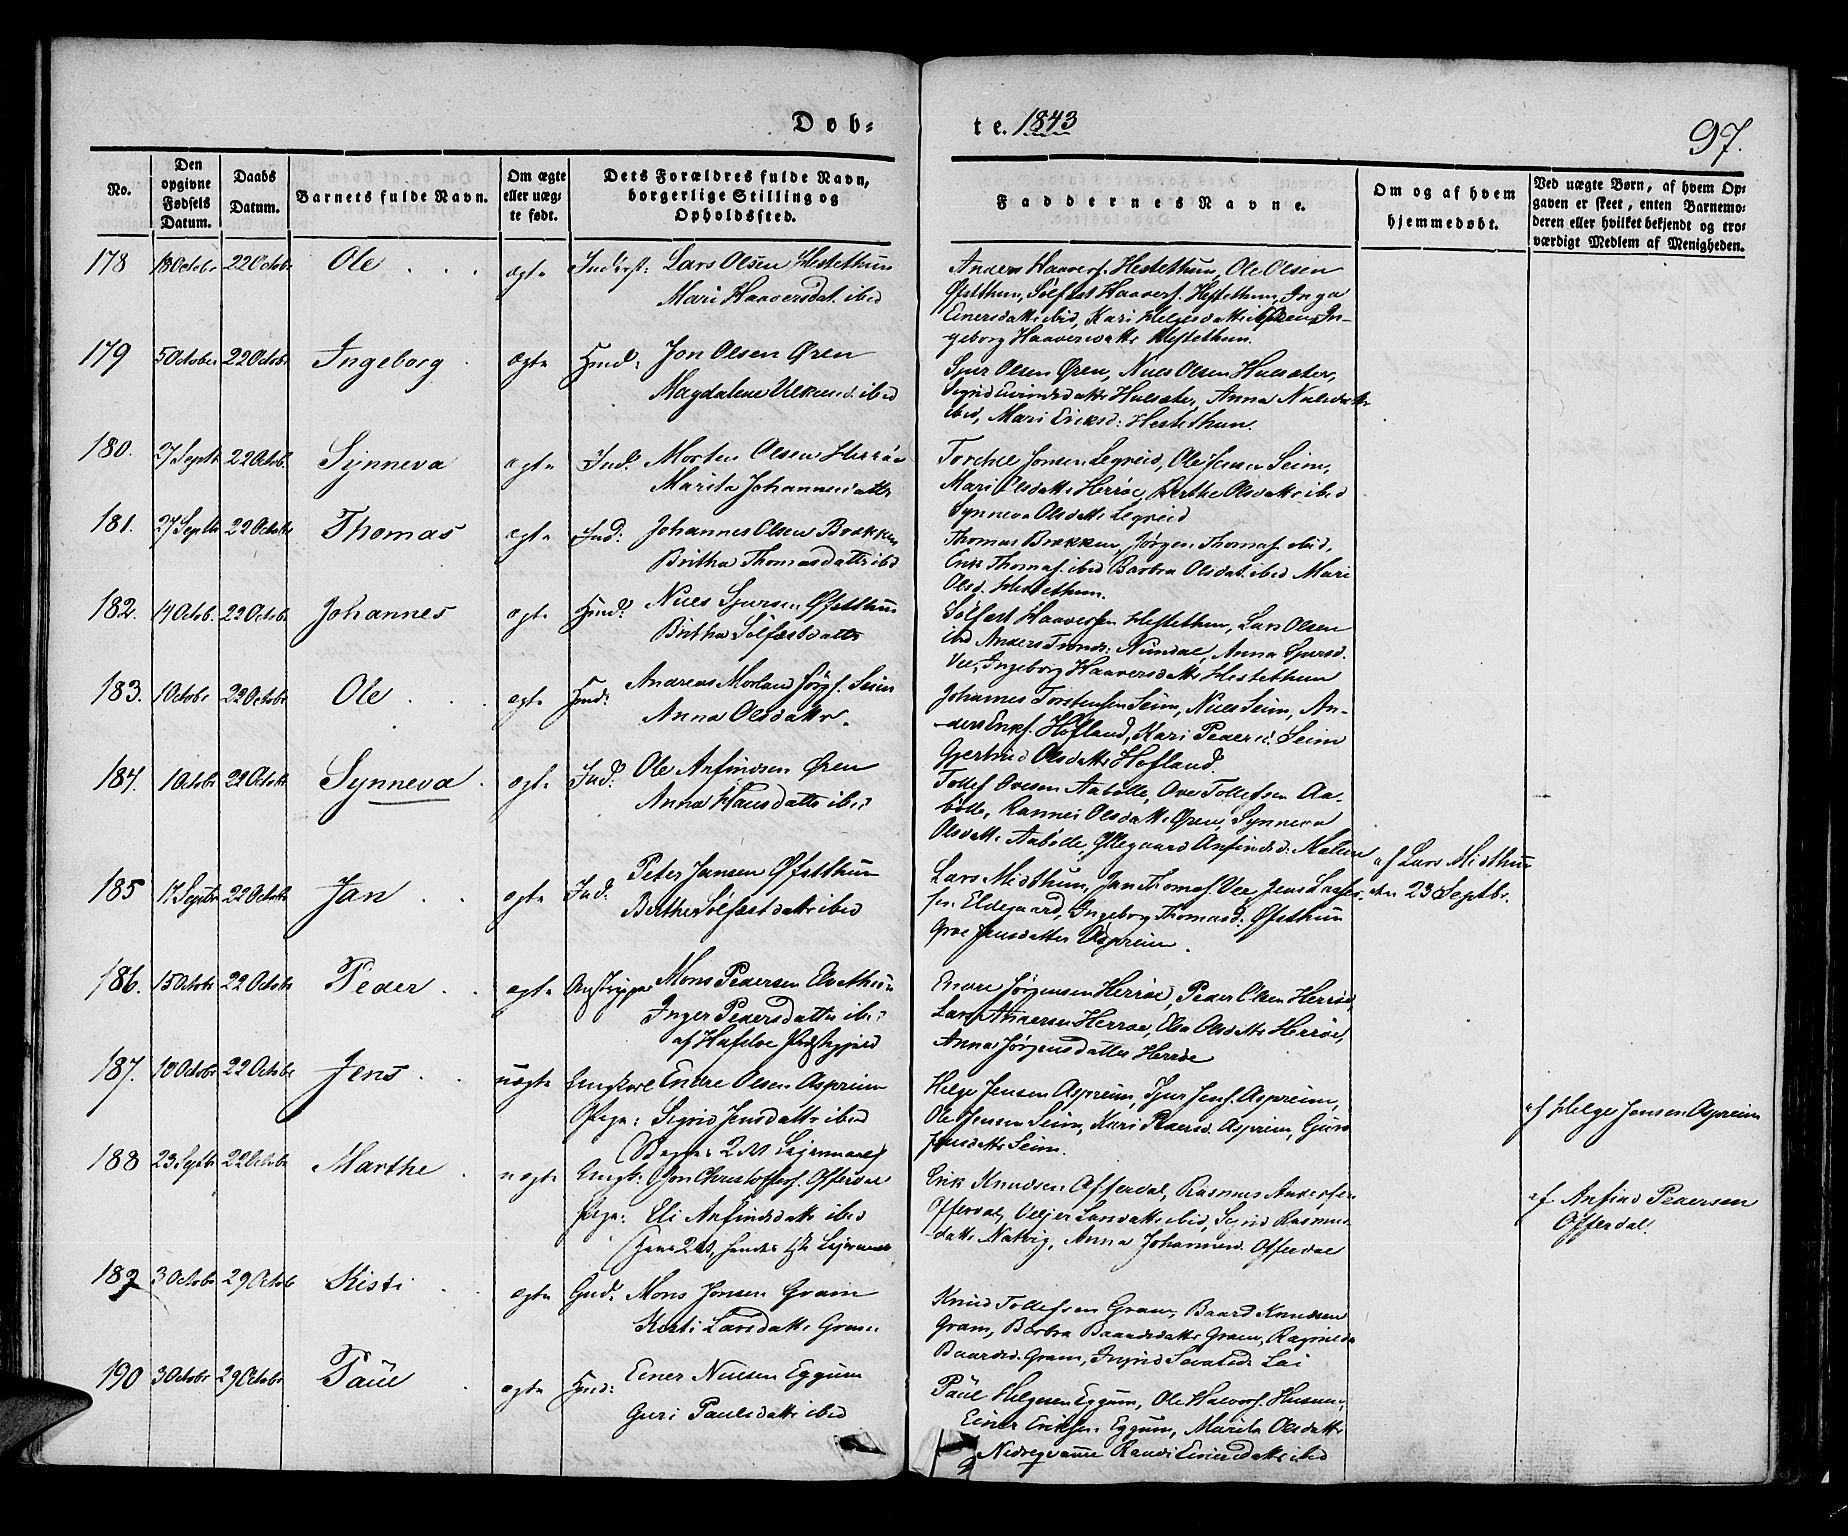 Døb-
te. 1843
97.
No.
Den opgivne Fødsels Datum.
Daabs Datum.
Barnets fulde Navn.
Om ægte eller uægte født.
Dets Forældres fulde Navn, borgerlige Stilling og Opholdssted.
Faddernes Navne.
Om og af hvem hjemmedøbt.
Ved uægte Børn, af hvem Opgaven er skeet, enten Barnemoderen eller hvilket bekjendt og troværdigt Medlem af Menigheden.
178 18 Octobr 22 Octobr Ole ægte Lars Olsen Hestethun
Mari Haaversdat. ibid
Anders Haavers. Hestethun, Ole Olsen
Øfstthun, Sølfest Haavers. Hestethun, Inga
Einersdatte ibid, Kari Helgesdatte Øren, In-
geborg Haaversdatte Hestethun.
179 5 October 22 Octobr Ingeborg ægte Hmd: Jon Olsen Øren
Magdalene ibid
Sjur Olsen Øren, Niels Olsen Hulsæter,
Sigrid Eivindsdatte Hulsæter, Anna Nielsdatte
ibid, Mari Eriksd: Hestethun.
180. 27 Septb 22 Octob. Synneva ægte Ind. Morten Olsen Herrøe
Marita Johannesdatte
Torchel Jonsen Legreid, Ole Jensen Seim,
Mari Olsdatte Herrøe, Berthe Olsdatte ibid
Synneva Olsdatte Legreid
181. 27 Septb 22 Octobr Thomas ægte Ind: Johannes Olsen Brekken
Britha Thomasdatte ibid
Thomas Brekken, Jørgen Thomas. ibid,
Erik Thomas. ibid Barbra Olsdat. ibid Mari
Olsd. Hestethun.
182. 14 Octob. 22 Octobr Johannes ægte Hmd: Niels Sjursen Øfstthun
Britha Sølfestdatte
Sølfest Haaversen Hestethun, Lars Olsen
ibid Anders Tronds: Nundal, Anna Sjursd.
Vee, Ingeborg Haaversdatte Hestethun
183. 1 Octobr 22 Octobr Ole ægte Hmd: Andreas Morland Jørgs. Seim
Anna Olsdatte.
Johannes Torstensen Seim, Niels Seim, An-
ders Eriks. Hofland, Kari Pedersd. Seim
Gjertrud Olsdatte Hofland.
184. 1 Octobr 22 Octobr Synneva ægte Ind: Ole Anfindsen Øren
Anna Hansdatte ibid
Tollef Ovesen Aabølle, Ove Tollefsen Aa-
bølle, Rannei Olsdatte Øren, Synneva
Olsdatte Aabølle, Anfindsd:
185 17 Septbr 22 Octobr Jan ægte Ind: Peter Jansen Øfstthun
Berthe Sølfestdatte ibid
Lars Midthun, Jan Thomas. Vee, Jens Lasse-
sen Eldegaard, Ingeborg Thomasd: Øfstthun
Groe Jensdatter Aspreim.
af Lars Midthun
den 23 Septbr.
186. 15 Octobr 22 Octobr Peder ægte Mons Pedersen Elvethun
Inger Pedersdatte ibid
af Hafsloe Præstegjeld
Endre Jørgensen Herrøe, Peder Olsen Herrøe,
Lars Andersen Herrøe, Elsa Olsdatte Herrøe,
Anna Jørgensdatter Herrøe
187. 10 Octobr 22 Octobr Jens uægte Ungkarl Endre Olsen Aspreim
Pige: Sigrid Jensdatte ibid
(Begge 2det Leiermaal)
Helge Jensen Aspreim, Sjur Jens. Aspreim,
Ole Jensen Seim, Kari Pedersd. Aspreim, Guro
Jensdatte Seim.
af Helge Jensen Aspreim
188 23 Septbr 22 Octobr Marthe uægte Ungk: Jon Christoffers. Offerdal
Pige: Eli Anfindsdatte ibid
(hans 2det, hendes 1ste Leiermaal
Erik Knudsen Offerdal, Rasmus Andersen
Offerdal, Lars datte ibid, Sigrid Rasmus-
datte Natvig, Anna Johannesd. Offerdal
af Anfind Pedersen
Offerdal.
189 3 Octobr 29 Octob Kisti ægte Gmd. Mons Jonsen Gram
Kisti Larsdatte Gram
Knud Tollefsen Gram, Baard Knudsen
Gram, Barbra Baardsdatte Gram, Ragnilda
Baardsd. Gram, Ingrid Lai
190 3 Octobr 29 Octobr Paul ægte Hmd: Einer Nielsen Eggum
Guri Paulsdatte ibid
Paul Helgesen Eggum, Ole Halvors.
Einer Eriksen Eggum, Marita Olsdatte
Nedregvamme Randi Einersdatte ibid